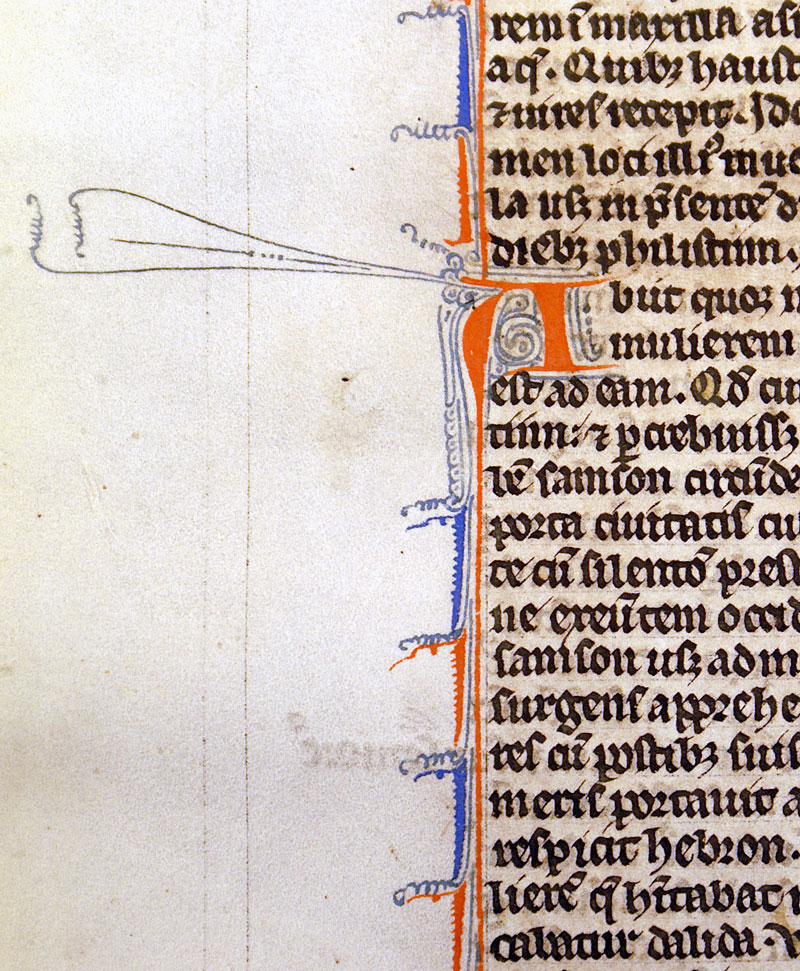 rem ĩ maxilla asi
aq̃. Quibꝫ haust
⁊ uires recepit. Jdc
men loci illiꝰ inuo
la usꝫ in p̃sentẽ d
diebꝫ philistiim.
A
buit quoꝫ i
mulierem
est ad eam. Qd̃ cũ
tiim: ⁊ ꝑcrebuissꝫ
rẽ samson circũde
porta ciuitatis cu
te cũ silentõ prest
ne exeũtem occid
samson usꝫ ad m
surgens apprehe
res cũ postibꝫ suis
meris portauit a
respicit hebron.
lierẽ q̃ hĩtabat
cabatur dalida. V